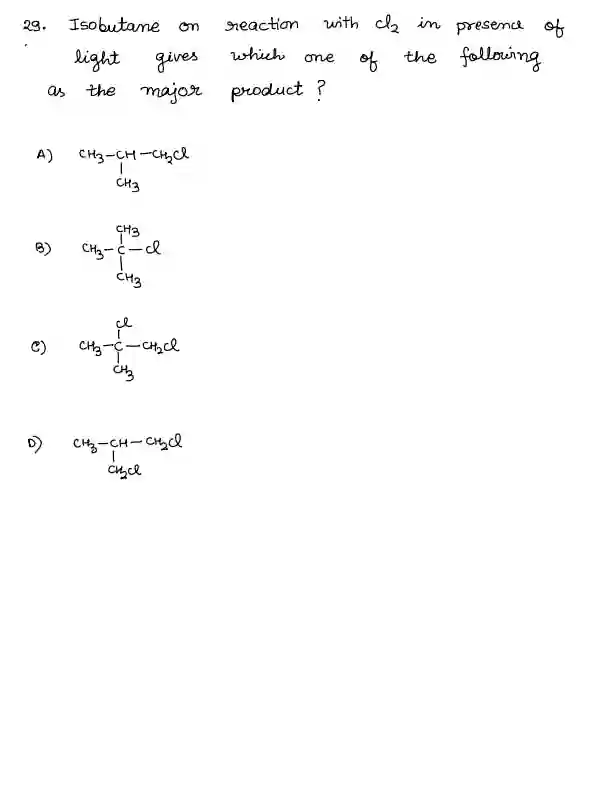 29. Isobutane on reaction with Cl2 in presence of
light gives which one of the following
as the major product?
A) CH3-CH-CH2Cl
|
CH3
CH3
|
B) CH3-C-Cl
|
CH3
Cl
|
C) CH3-C-CH2Cl
|
CH3
D) CH3-CH-CH2Cl
|
CH2Cl